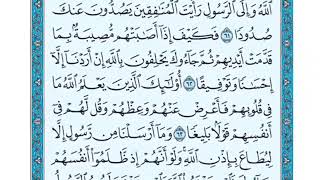 ٱللَّهُ وَإِلَى ٱلرَّسُولِ رَأَيْتَ ٱلْمُنَٰفِقِينَ يَصُدُّونَ عَنكَ
صُدُودًا ٦١ فَكَيْفَ إِذَآ أَصَٰبَتْهُم مُّصِيبَةٌۢ بِمَا
قَدَّمَتْ أَيْدِيهِمْ ثُمَّ جَآءُوكَ يَحْلِفُونَ بِٱللَّهِ إِنْ أَرَدْنَآ إِلَّآ
إِحْسَٰنًا وَتَوْفِيقًا ٦٢ أُو۟لَٰٓئِكَ ٱلَّذِينَ يَعْلَمُ ٱللَّهُ مَا
فِى قُلُوبِهِمْ فَأَعْرِضْ عَنْهُمْ وَعِظْهُمْ وَقُل لَّهُمْ فِىٓ
أَنفُسِهِمْ قَوْلًۢا بَلِيغًا ٦٣ وَمَآ أَرْسَلْنَا مِن رَّسُولٍ إِلَّا
لِيُطَاعَ بِإِذْنِ ٱللَّهِ وَلَوْ أَنَّهُمْ إِذ ظَّلَمُوٓا۟ أَنفُسَهُمْ